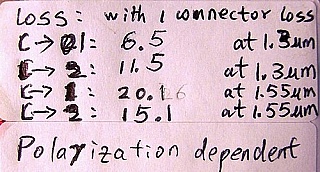 Loss: with 1 connector loss
C→1: 6.5 at 1.3um
C→2: 11.5 at 1.3um
C→1: 20.16 at 1.55um
C→2: 15.1 at 1.55um
Polarization dependent